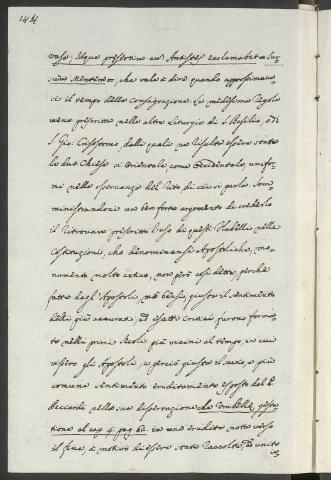 144
vasa; idque præsertim cum Antistes exclamabat = Sur-
sum Mentem =, che vale a dire quando approssimava-
si il tempo della consagrazione. La medesima regola
vien prescritta nella altra Liturgia di S. Basilio, e di
S. Gio: Crisostomo, dalle quali ne risulta essere state
le due Chiese sì Orientale, come Occidentale, unifor-
mi nella osservanza del Rito di cui si parla. Som-
ministrandoci un ben forte argomento di crederlo
il ritrovarsi prescritto l'uso di questi Flabelli nelle
Costituzioni, che denominansi Apostoliche, mo-
numento molto antico, non però così dette, perchè
fatte dagli Apostoli, ma bensì, giusta il sentimento
delli più accurati, ed esatti critici furono forma-
te nelli primi Secoli più vicini al tempo, in cui
vissero gli Apostoli, e perciò giusta il vero, e più
comune sentimento eruditamente esposto dal P.
Bicciardi nella sua dissertazione che Umbellæ gesta-
tione al cap. 4. pag. 62. in una erudita nota verso
il fine, a motivo di essere state raccolte, ed unite